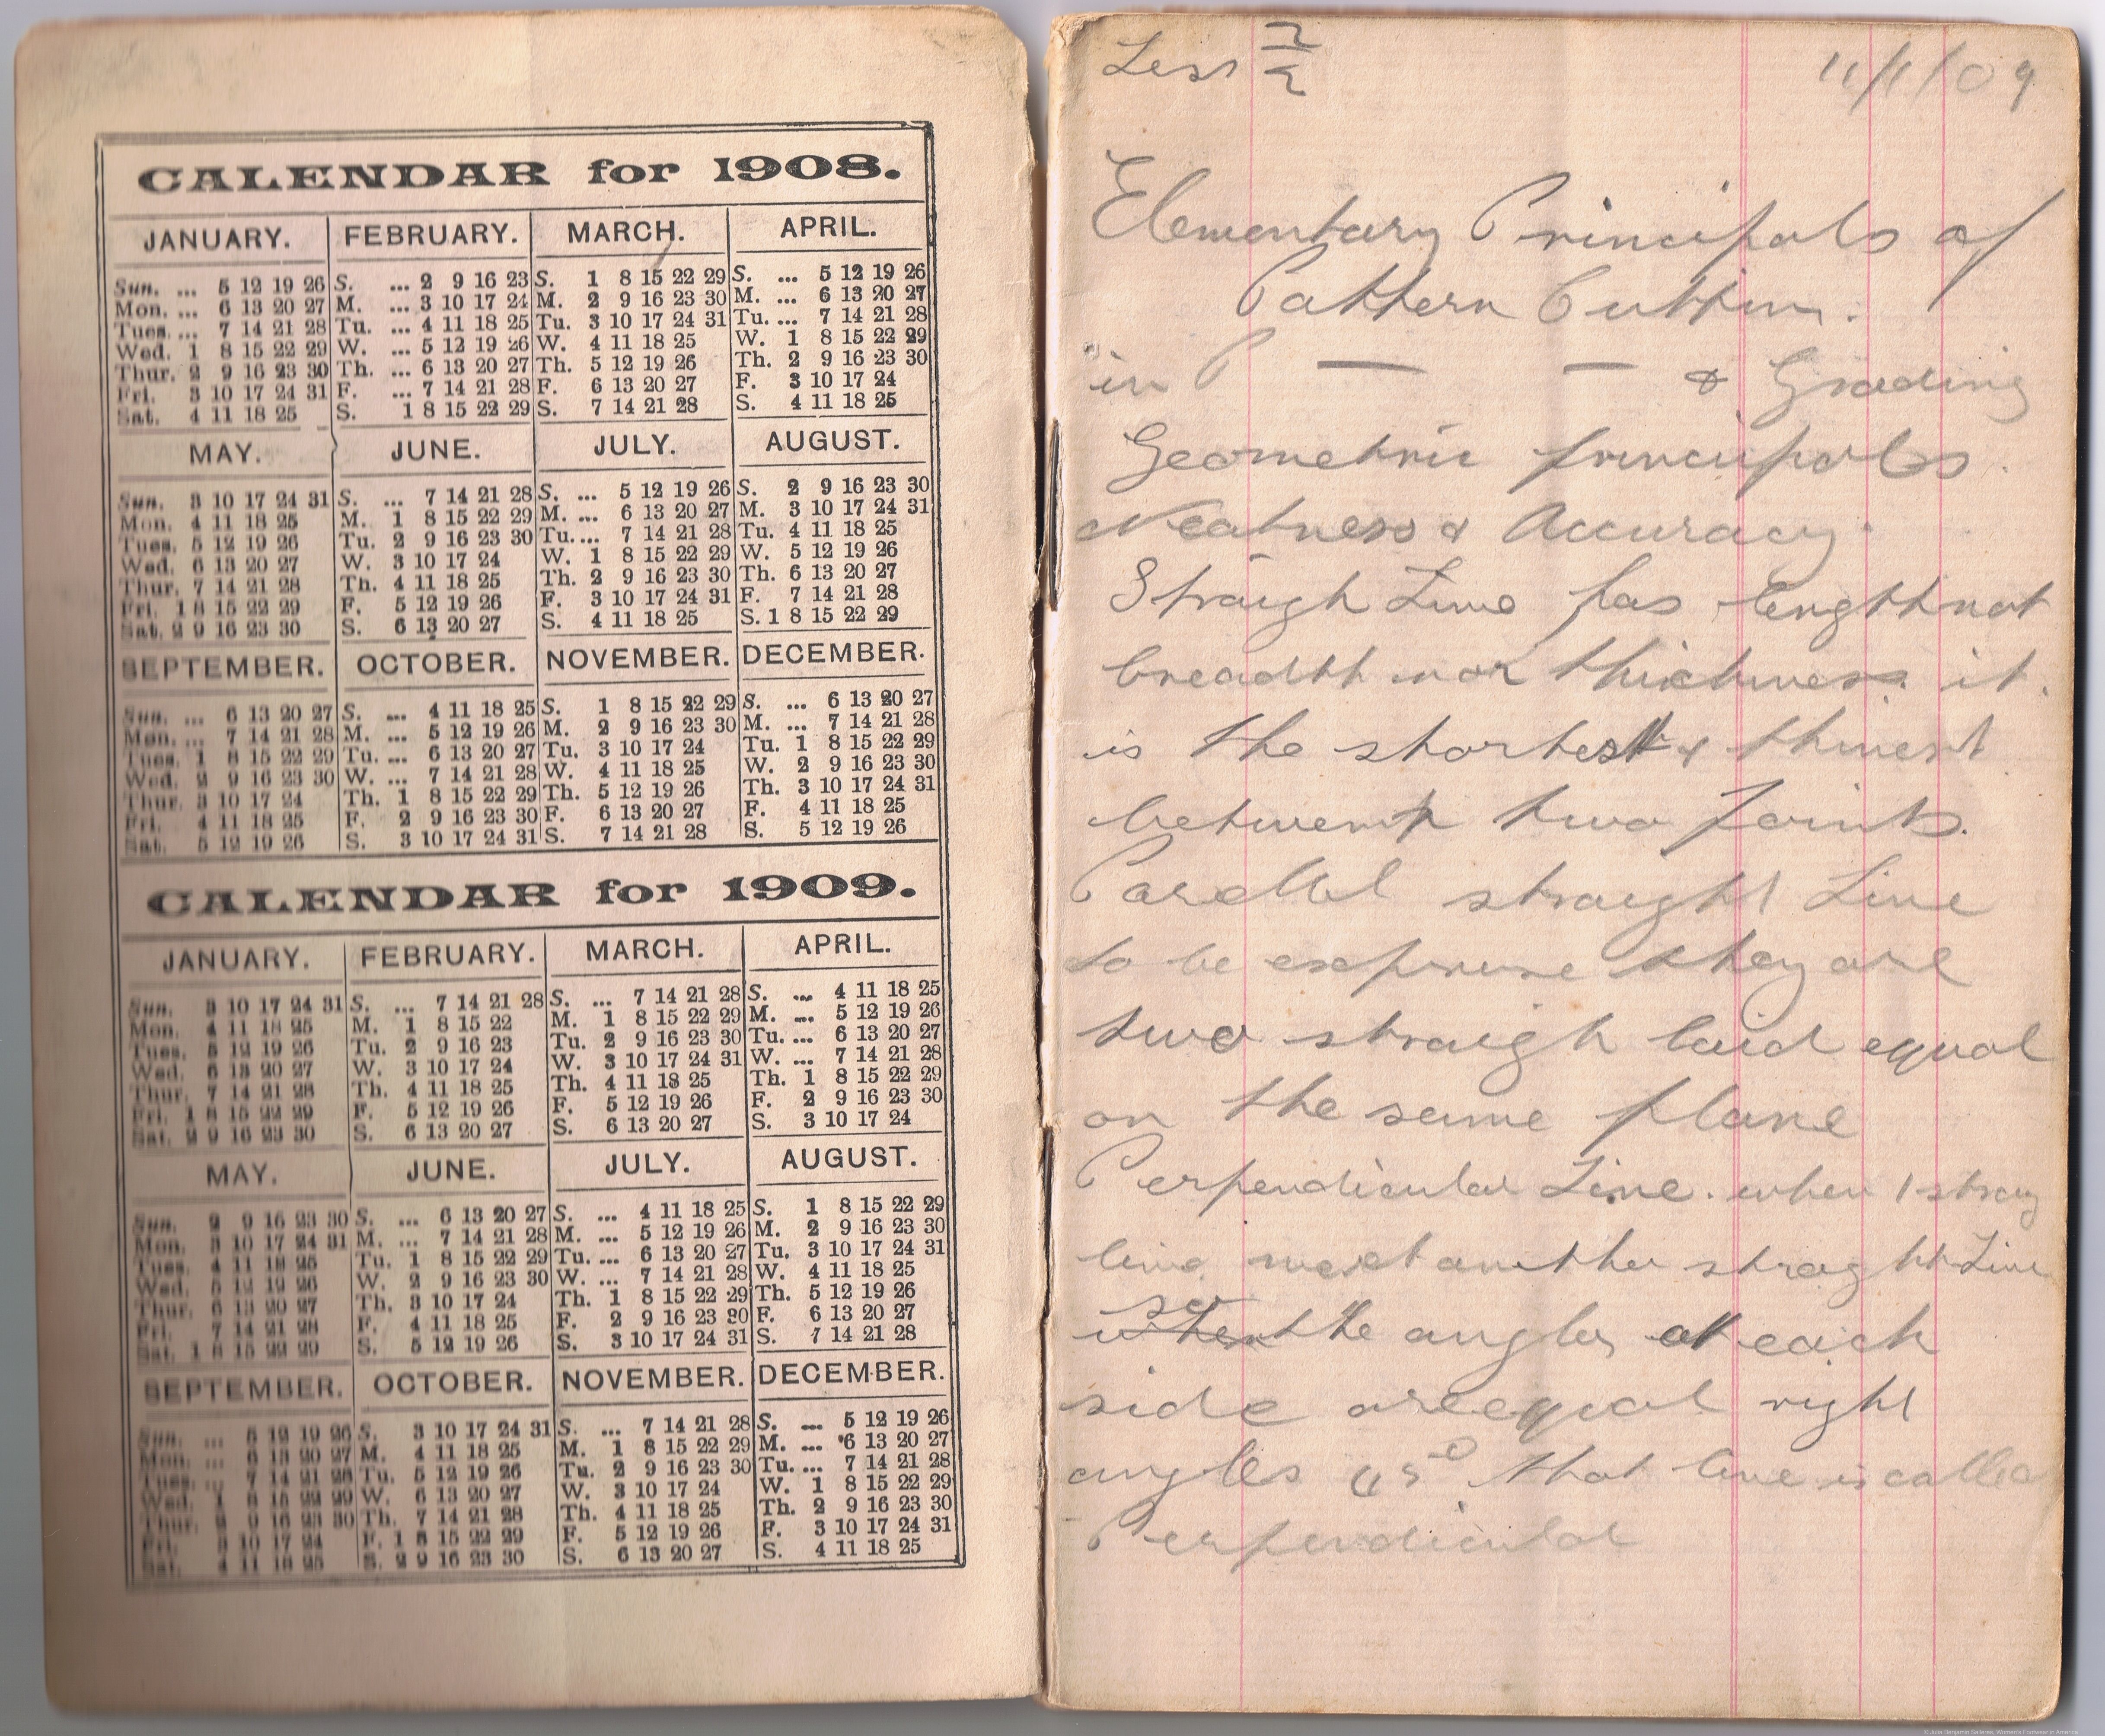 CALENDAR for 1908.
JANUARY. FEBRUARY. MARCH. APRIL.
Sun. ... 5 12 19 26 S. ... 2 9 16 23 S. 1 8 15 22 29 S. ... 5 12 19 26
Mon. ... 6 13 20 27 M. ... 3 10 17 24 M. 2 9 16 23 30 M. ... 6 13 20 27
Tues. ... 7 14 21 28 Tu. ... 4 11 18 25 Tu. 3 10 17 24 31 Tu. ... 7 14 21 28
Wed. 1 8 15 22 29 W. ... 5 12 19 26 W. 4 11 18 25 W. 1 8 15 22 29
Thur. 2 9 16 23 30 Th. ... 6 13 20 27 Th. 5 12 19 26 Th. 2 9 16 23 30
Fri. 3 10 17 24 31 F. ... 7 14 21 28 F. 6 13 20 27 F. 3 10 17 24
Sat. 4 11 18 25 S. 1 8 15 22 29 S. 7 14 21 28 S. 4 11 18 25
MAY. JUNE. JULY. AUGUST.
Sun. 3 10 17 24 31 S. ... 7 14 21 28 S. ... 5 12 19 26 S. 2 9 16 23 30
Mon. 4 11 18 25 M. 1 8 15 22 29 M. ... 6 13 20 27 M. 3 10 17 24 31
Tues. 5 12 19 26 Tu. 2 9 16 23 30 Tu. ... 7 14 21 28 Tu. 4 11 18 25
Wed. 6 13 20 27 W. 3 10 17 24 W. 1 8 15 22 29 W. 5 12 19 26
Thur. 7 14 21 28 Th. 4 11 18 25 Th. 2 9 16 23 30 Th. 6 13 20 27
Fri. 1 8 15 22 29 F. 5 12 19 26 F. 3 10 17 24 31 F. 7 14 21 28
Sat. 2 9 16 23 30 S. 6 13 20 27 S. 4 11 18 25 S. 1 8 15 22 29
SEPTEMBER. OCTOBER. NOVEMBER. DECEMBER.
Sun. ... 6 13 20 27 S. ... 4 11 18 25 S. 1 8 15 22 29 S. ... 6 13 20 27
Mon. ... 7 14 21 28 M. ... 5 12 19 26 M. 2 9 16 23 30 M. ... 7 14 21 28
Tues. 1 8 15 22 29 Tu. ... 6 13 20 27 Tu. 3 10 17 24 Tu. 1 8 15 22 29
Wed. 2 9 16 23 30 W. ... 7 14 21 28 W. 4 11 18 25 W. 2 9 16 23 30
Thur. 3 10 17 24 Th. 1 8 15 22 29 Th. 5 12 19 26 Th. 3 10 17 24 31
Fri. 4 11 18 25 F. 2 9 16 23 30 F. 6 13 20 27 F. 4 11 18 25
Sat. 5 12 19 26 S. 3 10 17 24 31 S. 7 14 21 28 S. 5 12 19 26
CALENDAR for 1909.
JANUARY. FEBRUARY. MARCH. APRIL.
Sun. 3 10 17 24 31 S. ... 7 14 21 28 S. ... 7 14 21 28 S. ... 4 11 18 25
Mon. 4 11 18 25 M. 1 8 15 22 M. 1 8 15 22 29 M. ... 5 12 19 26
Tues. 5 12 19 26 Tu. 2 9 16 23 Tu. 2 9 16 23 30 Tu. ... 6 13 20 27
Wed. 6 13 20 27 W. 3 10 17 24 W. 3 10 17 24 31 W. ... 7 14 21 28
Thur. 7 14 21 28 Th. 4 11 18 25 Th. 4 11 18 25 Th. 1 8 15 22 29
Fri. 1 8 15 22 29 F. 5 12 19 26 F. 5 12 19 26 F. 2 9 16 23 30
Sat. 2 9 16 23 30 S. 6 13 20 27 S. 6 13 20 27 S. 3 10 17 24
MAY. JUNE. JULY. AUGUST.
Sun. 2 9 16 23 30 S. ... 6 13 20 27 S. ... 4 11 18 25 S. 1 8 15 22 29
Mon. 3 10 17 24 31 M. ... 7 14 21 28 M. ... 5 12 19 26 M. 2 9 16 23 30
Tues. 4 11 18 25 Tu. 1 8 15 22 29 Tu. ... 6 13 20 27 Tu. 3 10 17 24 31
Wed. 5 12 19 26 W. 2 9 16 23 30 W. ... 7 14 21 28 W. 4 11 18 25
Thur. 6 13 20 27 Th. 3 10 17 24 Th. 1 8 15 22 29 Th. 5 12 19 26
Fri. 7 14 21 28 F. 4 11 18 25 F. 2 9 16 23 30 F. 6 13 20 27
Sat. 1 8 15 22 29 S. 5 12 19 26 S. 3 10 17 24 31 S. 7 14 21 28
SEPTEMBER. OCTOBER. NOVEMBER. DECEMBER.
Sun. ... 5 12 19 26 S. 3 10 17 24 31 S. ... 7 14 21 28 S. ... 5 12 19 26
Mon. ... 6 13 20 27 M. 4 11 18 25 M. 1 8 15 22 29 M. ... 6 13 20 27
Tues. ... 7 14 21 28 Tu. 5 12 19 26 Tu. 2 9 16 23 30 Tu. ... 7 14 21 28
Wed. 1 8 15 22 29 W. 6 13 20 27 W. 3 10 17 24 W. 1 8 15 22 29
Thur. 2 9 16 23 30 Th. 7 14 21 28 Th. 4 11 18 25 Th. 2 9 16 23 30
Fri. 3 10 17 24 F. 1 8 15 22 29 F. 5 12 19 26 F. 3 10 17 24 31
Sat. 4 11 18 25 S. 2 9 16 23 30 S. 6 13 20 27 S. 4 11 18 25
Less 11/1/09
Elementary Principals of
Pattern Cutting.
in P — — & Grading
Geometric principals.
Neatness & Accuracy.
Straigh Line has length not
breadth nor thickness. it.
is the shortest & thinest
between two points.
Parellel straight Line
to be they are
two straigh laid equal
on the same plane
Perpendicular Line. when 1 straig
line meet another straight Line
so when the angles at each
side are equal right
angles 45° that line is called
Perpendicular
© Julia Benjamin Ballerini, Women's Footwear in America